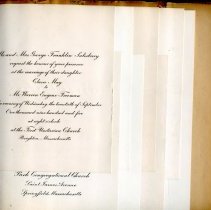 Mr and Mrs George Franklin Salisbury
request the honour of your presence
at the marriage of their daughter
Edna May
to
Mr Warren Eugene Freeman
evening of Wednesday the twentieth of September
One thousand nine hundred and
at eight o'clock
at the First Unitarian Church
Brighton, Massachusetts
Park Congregational Church
Saint James Avenue
Springfield Massachusetts